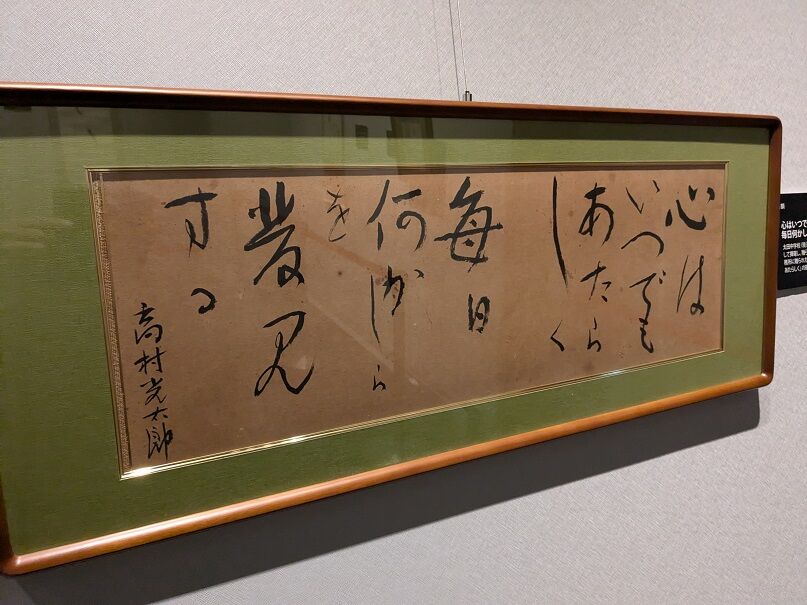 心は
いつでも
あたら
しく
毎日
何かしら
を
発見
する
高村光太郎
心はいつで
毎日何かし